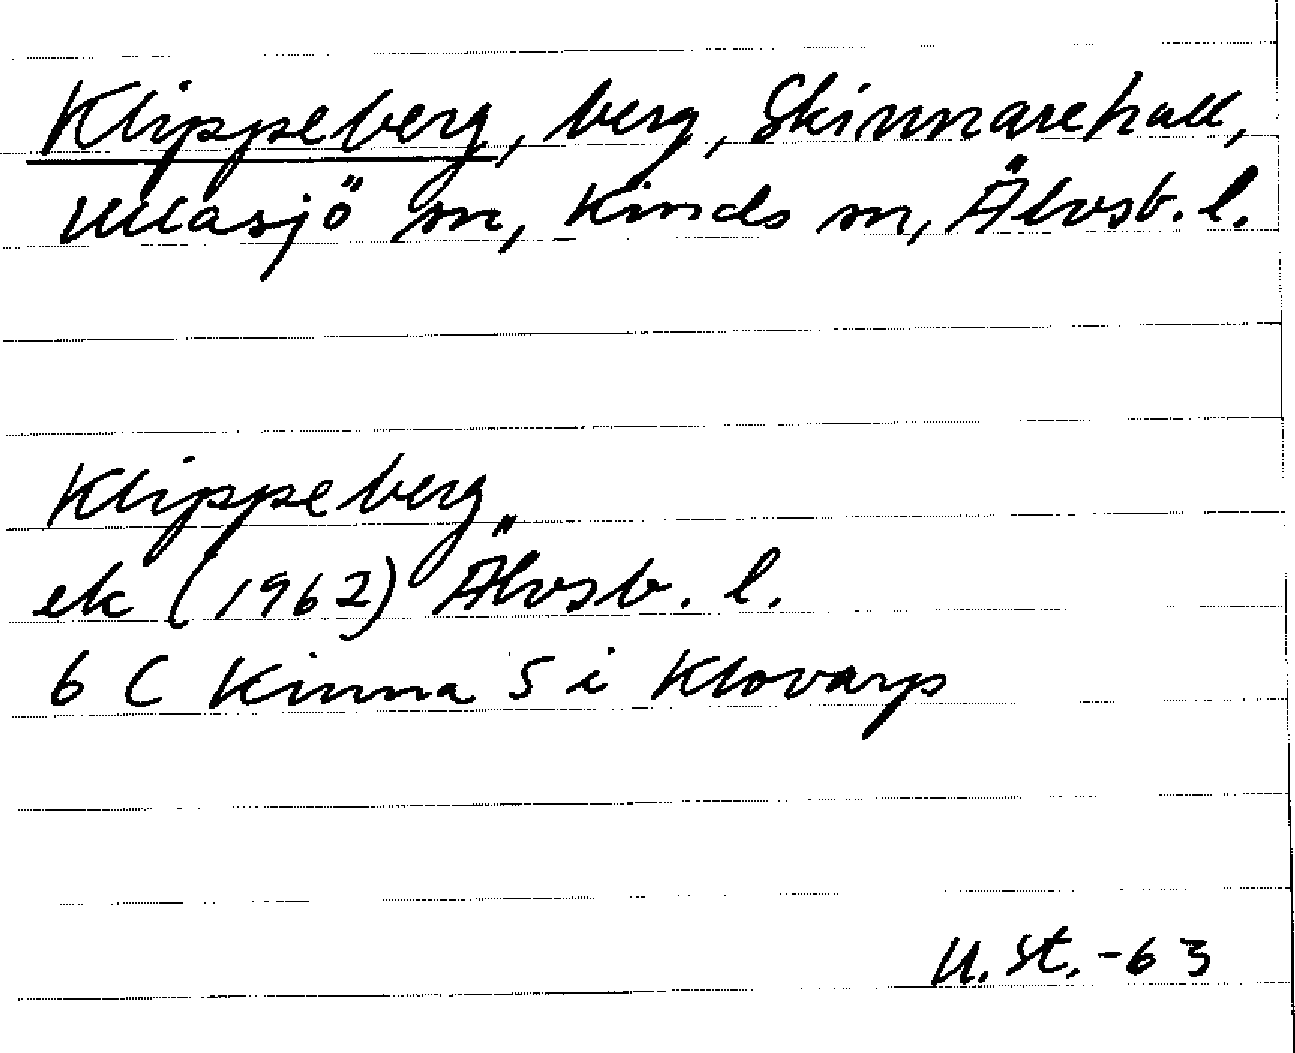 Klippeberg, berg, Skinnarehall,
Ullasjö sn, Kinds m, Älvsb. l.
Klippeberg
ek (1962) Älvsb. l.
6 C Kinna S i Klovarp
U. St. -63